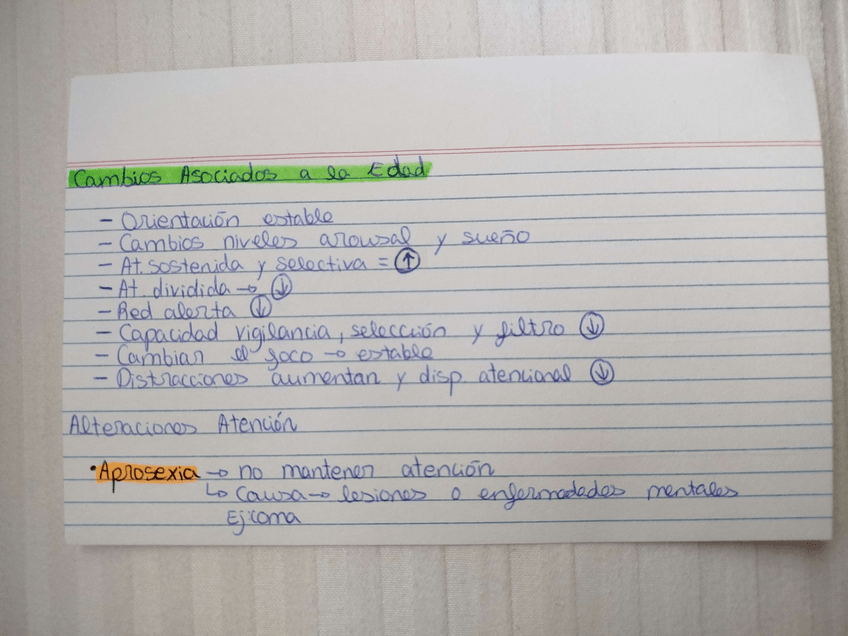 Cambios Asociados a la Edad
- Orientación estable
- Cambios niveles arousal y sueño
- At. sostenida y selectiva = ↑
- At. dividida → ↓
- Red alerta ↓
- Capacidad vigilancia, selección y filtro ↓
- Cambiar el foco → estable
- Distracciones aumentan y disp. atencional ↓
Alteraciones Atención
• Aprosexia → no mantener atención
↳ Causa → lesiones o enfermedades mentales
Ej: coma